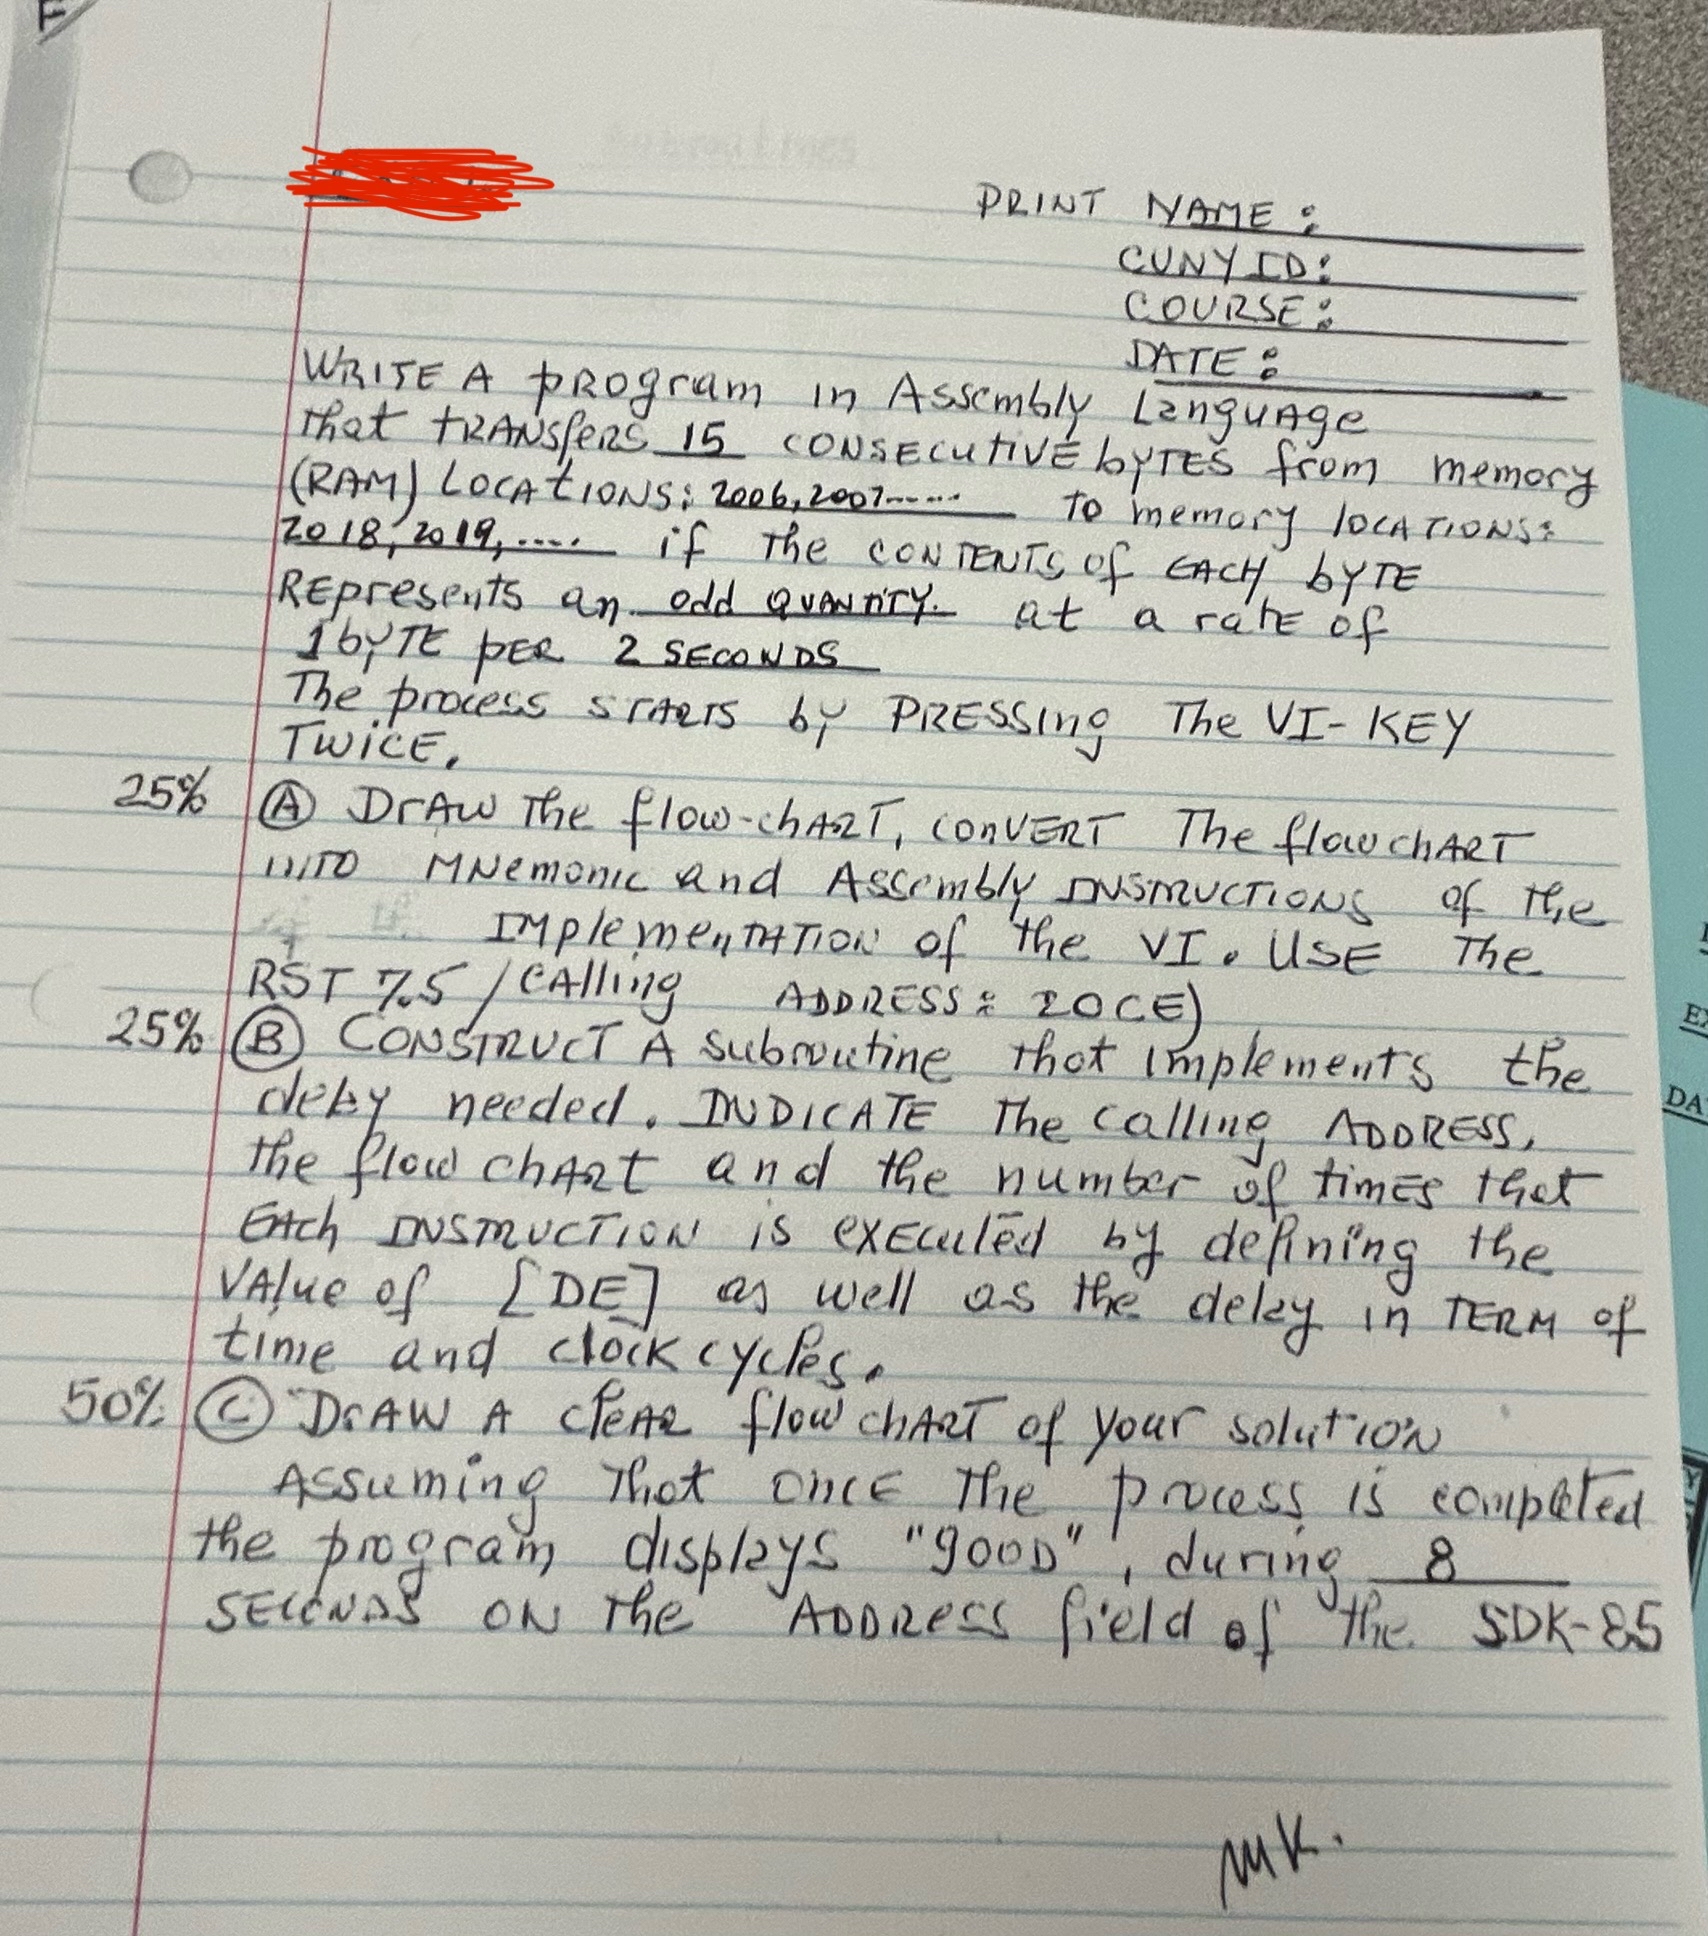 PRINT NAME:
CUNY ID:
COURSE:
DATE:
WRITE A PROgram in Assembly Language
that tRANSfERS 15 CONSECUTIVE bYTES from memory
(RAM) LOCAtIONS: 2006, 2007...... To memory lOCATIONS:
2018, 2019, ..... if The CONTENTS of EACH bYTE
REpresents an odd QUANTITY. at a ratE of
1 bYTE pER 2 SECONDS
The process STARTS by PRESSIng The VI-KEY
TWICE.
25% (A) DrAW The flow-chART, CONVERT The flowchART
INTO MNemonic and Assembly INSTRUCTIONS of the
IMplemenTATION of the VI. USE The
RST 7.5 / CAlling ADDRESS: 20CE)
25% (B) CONSTRUCT A subroutine that implements the
delay needed. INDICATE The Calling ADDRESS,
the flow chART and the number of timEs that
EAch INSTRUCTION is exEcuted by defining the
VAlue of [DE] as well as the delay in TERM of
time and clock cycles.
50% (C) DrAW A cleAR flow chART of your solution
Assuming That oncE The process is completed
the program displays "gOOD", during 8
SECONDS ON The ADDRESS field of the SDK-85
MK.
EX
DA